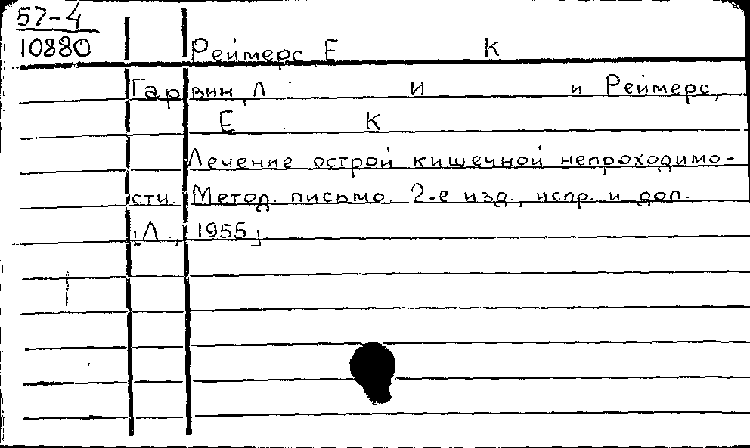 57-4
10880
Реймерс Е К
Гарвин, Л И и Реймерс,
Е К
Лечение острой кишечной непроходимо-
сти. Метод. письмо. 2-е изд., испр. и доп.
[Л., 1955]